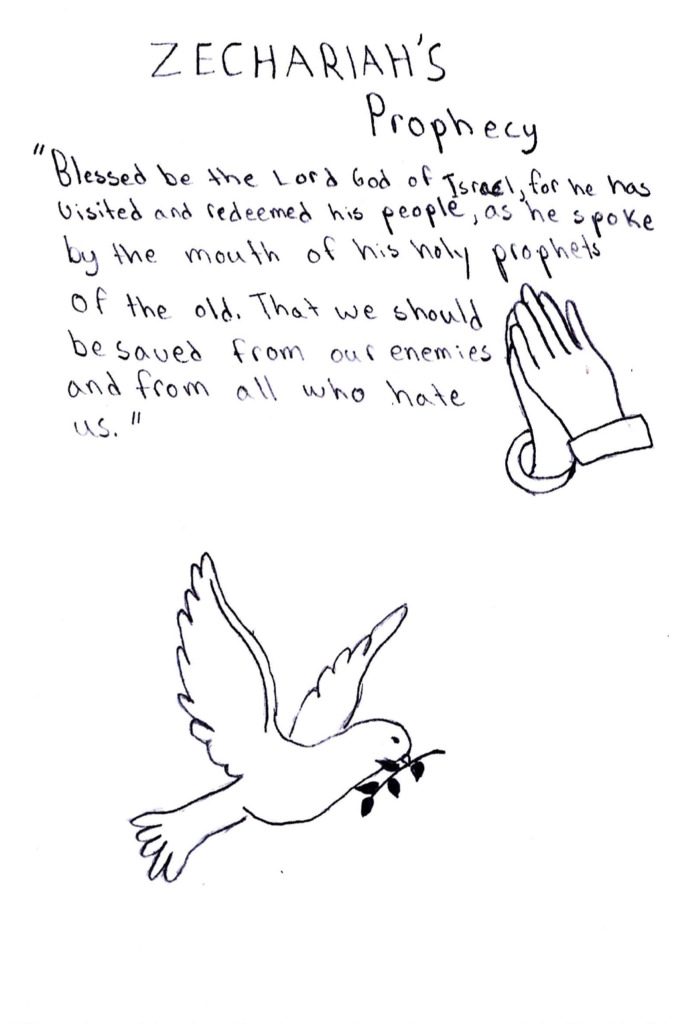 ZECHARIAH'S
Prophecy
"Blessed be the Lord God of Israel, for he has
visited and redeemed his people, as he spoke
by the mouth of his holy prophets
of the old. That we should
be saved from our enemies
and from all who hate
us."